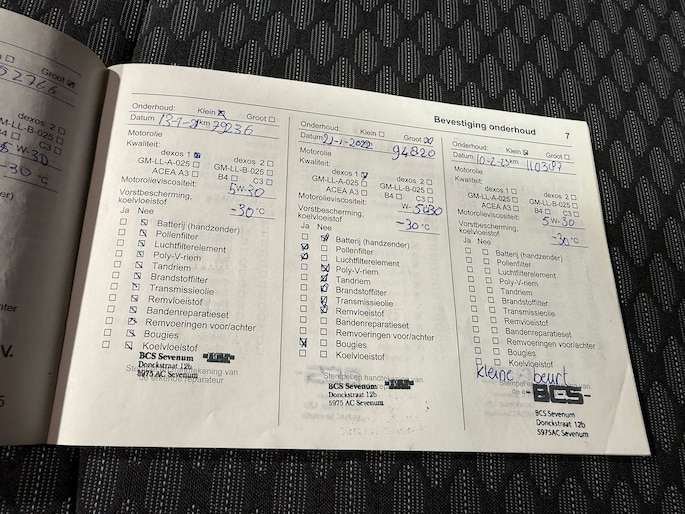 Groot
52766
dexos 2
GM-LL-B-025
B4 C3
5 W-30
-30 °C
Bevestiging onderhoud 7
Onderhoud: Klein Groot
Datum 13-1-21 km 79236
Motorolie
Kwaliteit:
dexos 1 dexos 2
GM-LL-A-025 GM-LL-B-025
ACEA A3 B4 C3
Motorolieviscositeit: 5W-30
Vorstbescherming,
koelvloeistof -30 °C
Ja Nee
Batterij (handzender)
Pollenfilter
Luchtfilterelement
Poly-V-riem
Tandriem
Brandstoffilter
Transmissieolie
Remvloeistof
Bandenreparatieset
Remvoeringen voor/achter
Bougies
Koelvloeistof
BCS Sevenum
Donckstraat 12b
5975 AC Sevenum
Onderhoud: Klein Groot
Datum 94820
Motorolie
Kwaliteit:
dexos 1 dexos 2
GM-LL-A-025 GM-LL-B-025
ACEA A3 B4 C3
Motorolieviscositeit: W-5030
Vorstbescherming,
koelvloeistof -30 °C
Ja Nee
Batterij (handzender)
Pollenfilter
Luchtfilterelement
Poly-V-riem
Tandriem
Brandstoffilter
Transmissieolie
Remvloeistof
Bandenreparatieset
Remvoeringen voor/achter
Bougies
Koelvloeistof
Stempel en handtekening van
de erkende reparateur
BCS Sevenum
Donckstraat 12b
5975 AC Sevenum
Onderhoud: Klein Groot
Datum 10-2-23 km 110387
Motorolie
Kwaliteit:
dexos 1 dexos 2
GM-LL-A-025 GM-LL-B-025
ACEA A3 B4 C3
Motorolieviscositeit: 5W-30
Vorstbescherming,
koelvloeistof -30 °C
Ja Nee
Batterij (handzender)
Pollenfilter
Luchtfilterelement
Poly-V-riem
Tandriem
Brandstoffilter
Transmissieolie
Remvloeistof
Bandenreparatieset
Remvoeringen voor/achter
Bougies
Koelvloeistof
kleine beurt
BCS
BCS Sevenum
Donckstraat 12b
5975AC Sevenum